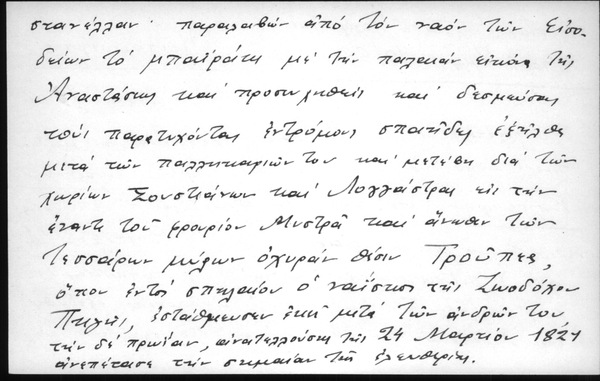 στανέλλαν· παραλαβών ἀπό τόν ναόν τῶν Εἰσο-
δείων τό μπαϊράκι μέ τήν παλαιάν εἰκόνα τῆς
Ἀναστάσεως καί προσευχηθείς καί δεσμεύσας
τούς παρατυχόντας ἐντρόμους σπαΐδες ἐξῆλθε
μετά τῶν παλληκαριῶν του καί μετέβη διά τῶν
χωρίων Σουστιάνων καί Λογγάστρας εἰς τήν
ἔναντι τοῦ φρουρίου Μυστρᾶ καί ἄνωθεν τῶν
τεσσάρων μύλων ὀχυράν θέσιν Τροῦπες,
ὅπου ἐντός σπηλαίου ὁ ναΐσκος τῆς Ζωοδόχου
Πηγῆς, ἐστάθμευσεν ἐκεῖ μετά τῶν ἀνδρῶν του
τήν δέ πρωΐαν, ἀνατελλούσης τῆς 24 Μαρτίου 1821
ἀνεπέτασε τήν σημαίαν τῆς ἐλευθερίας.